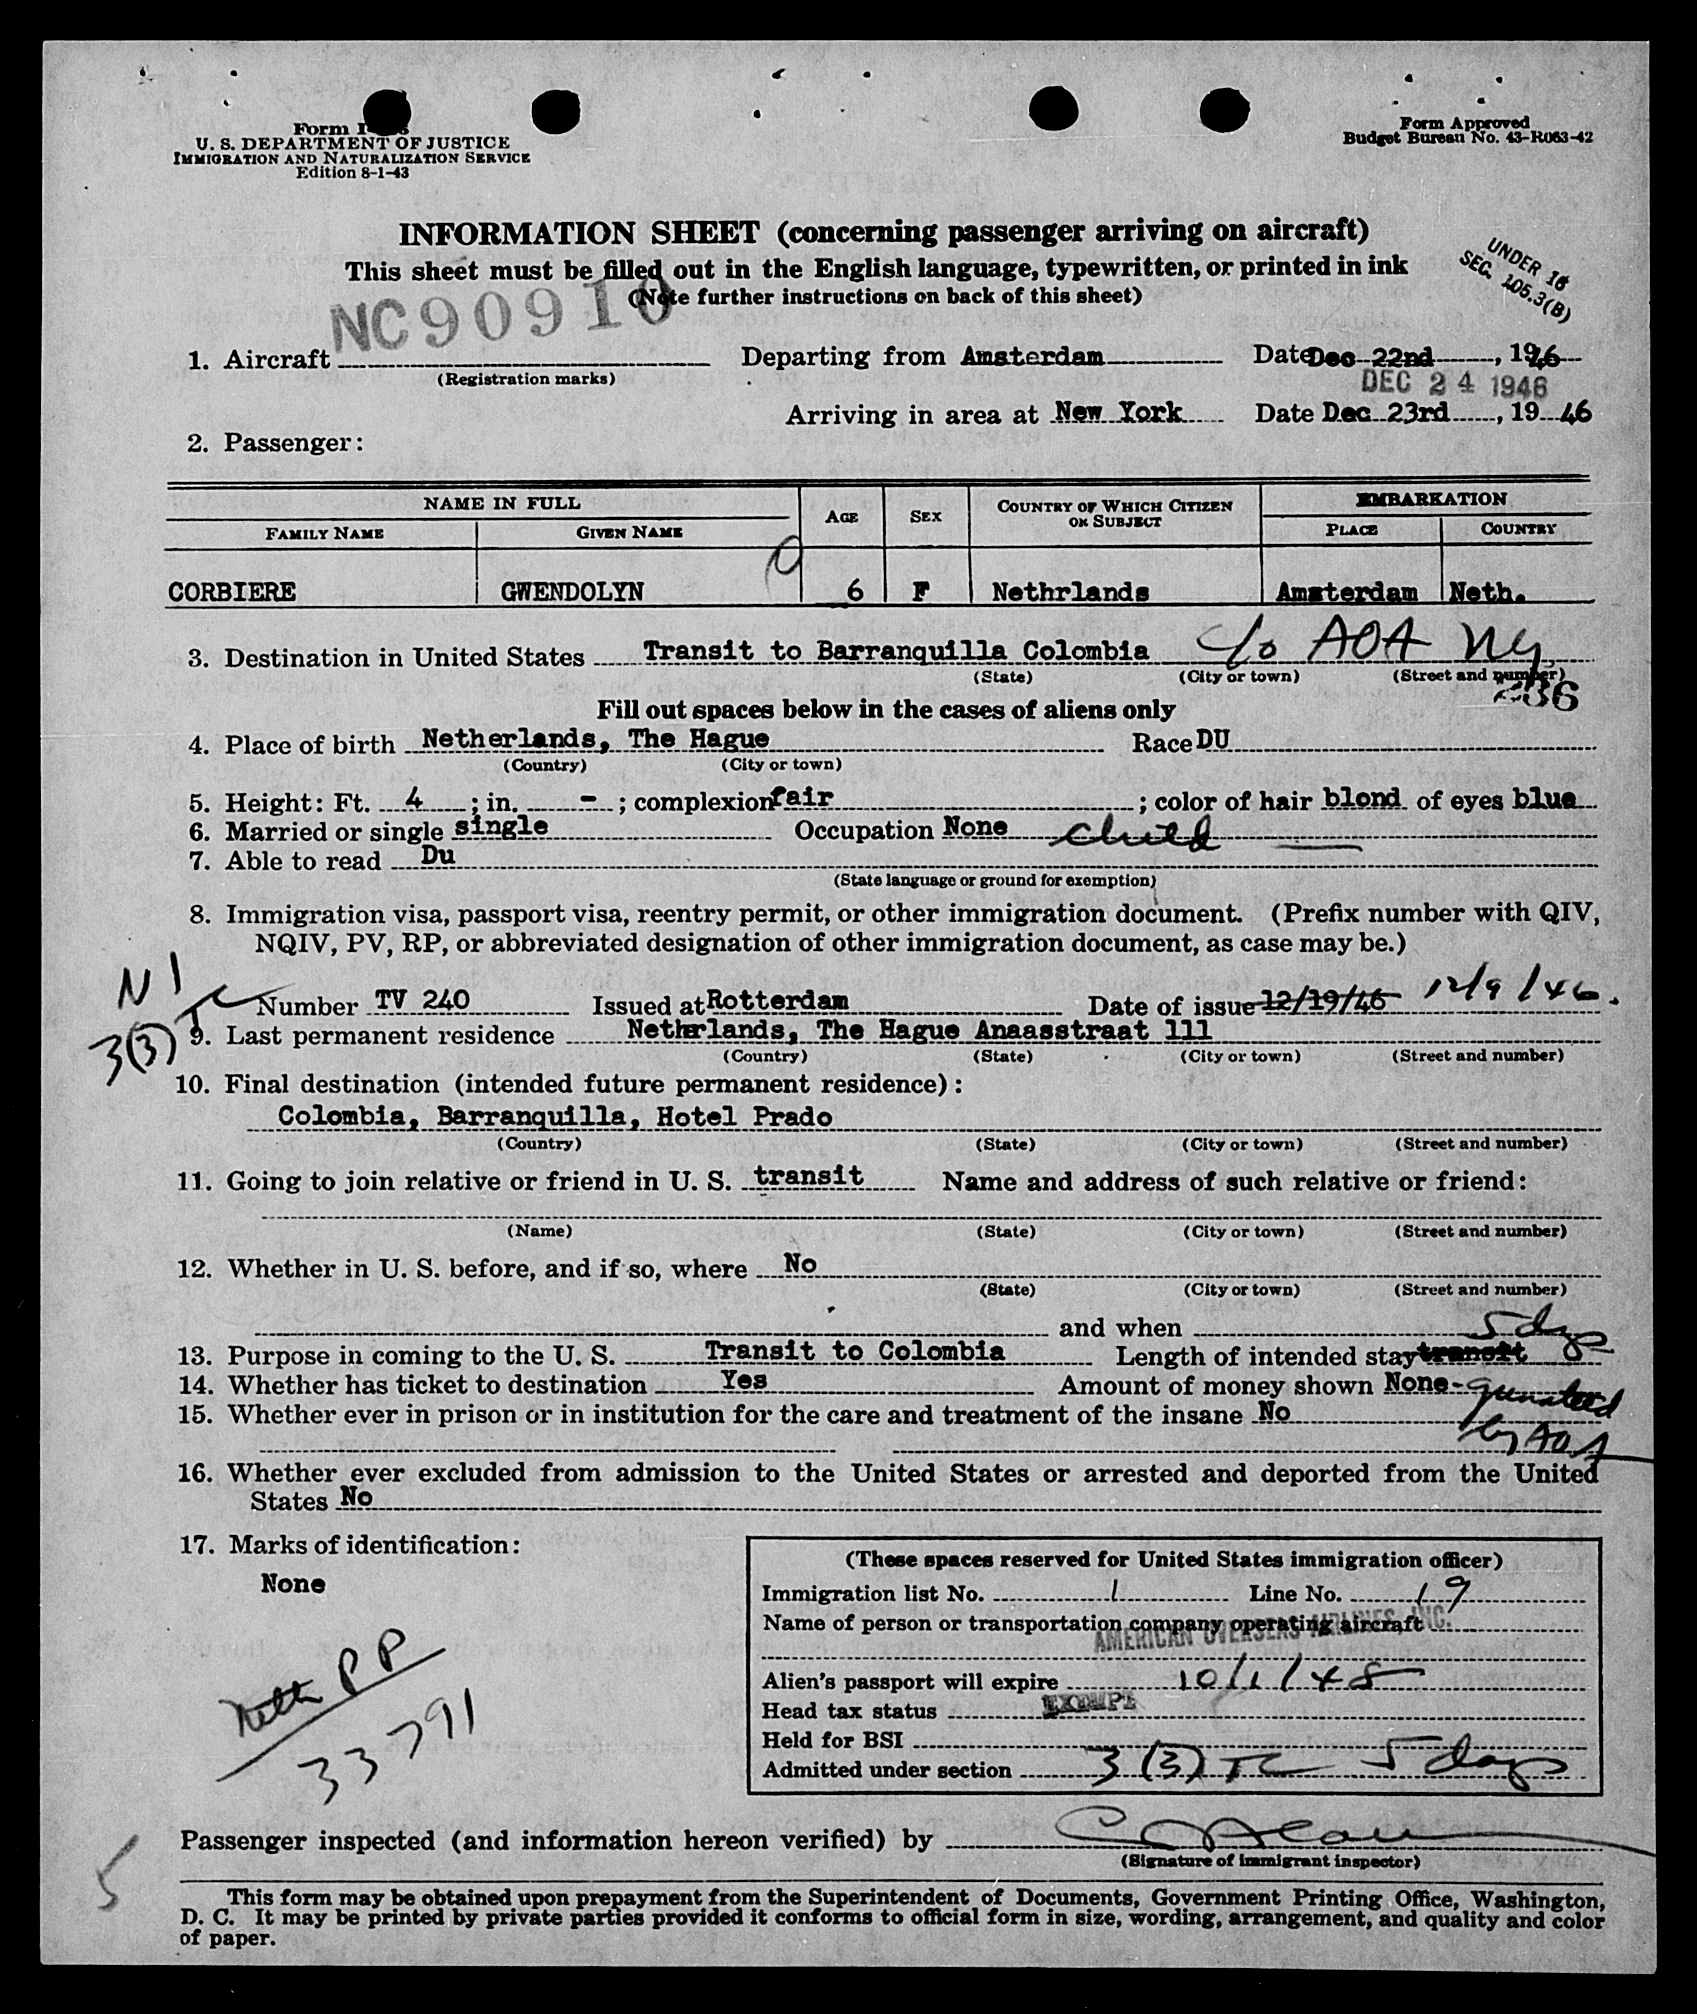 Form I-
U. S. DEPARTMENT OF JUSTICE
IMMIGRATION AND NATURALIZATION SERVICE
Edition 8-1-43
Form Approved
Budget Bureau No. 43-R063-42
INFORMATION SHEET (concerning passenger arriving on aircraft)
This sheet must be filled out in the English language, typewritten, or printed in ink
(Note further instructions on back of this sheet)
UNDER 16
SEC. 105.3(B)
NC90910
1. Aircraft Departing from Amsterdam Date Dec 22nd, 1946
(Registration marks)
DEC 24 1946
Arriving in area at New York Date Dec 23rd, 19 46
2. Passenger:
NAME IN FULL AGE SEX COUNTRY OF WHICH CITIZEN OR SUBJECT EMBARKATION
FAMILY NAME GIVEN NAME PLACE COUNTRY
CORBIERE GWENDOLYN 6 F Nethrlands Amsterdam Neth.
3. Destination in United States Transit to Barranquilla Colombia c/o AOA NY
(State) (City or town) (Street and number)
236
Fill out spaces below in the cases of aliens only
4. Place of birth Netherlands, The Hague Race DU
(Country) (City or town)
5. Height: Ft. 4 ; in. - ; complexion fair ; color of hair blond of eyes blue
6. Married or single single Occupation None child
7. Able to read Du
(State language or ground for exemption)
8. Immigration visa, passport visa, reentry permit, or other immigration document. (Prefix number with QIV,
NQIV, PV, RP, or abbreviated designation of other immigration document, as case may be.)
N I
3(3) TC
Number TV 240 Issued at Rotterdam Date of issue 12/19/46 12/9/46.
9. Last permanent residence Nethrlands, The Hague Anaasstraat 111
(Country) (State) (City or town) (Street and number)
10. Final destination (intended future permanent residence):
Colombia, Barranquilla, Hotel Prado
(Country) (State) (City or town) (Street and number)
11. Going to join relative or friend in U. S. transit Name and address of such relative or friend:
(Name) (State) (City or town) (Street and number)
12. Whether in U. S. before, and if so, where No
(State) (City or town) (Street and number)
and when
5 days
13. Purpose in coming to the U. S. Transit to Colombia Length of intended stay transit
14. Whether has ticket to destination Yes Amount of money shown None-guaranteed
15. Whether ever in prison or in institution for the care and treatment of the insane No
by AOA
16. Whether ever excluded from admission to the United States or arrested and deported from the United
States No
17. Marks of identification:
None
Neth PP
33791
(These spaces reserved for United States immigration officer)
Immigration list No. 1 Line No. 19
Name of person or transportation company operating aircraft
AMERICAN OVERSEAS AIRLINES, INC.
Alien's passport will expire 10/1/48
Head tax status EXEMPT
Held for BSI
Admitted under section 3(3) TC 5 days
Passenger inspected (and information hereon verified) by
(Signature of immigrant inspector)
5
This form may be obtained upon prepayment from the Superintendent of Documents, Government Printing Office, Washington,
D. C. It may be printed by private parties provided it conforms to official form in size, wording, arrangement, and quality and color
of paper.